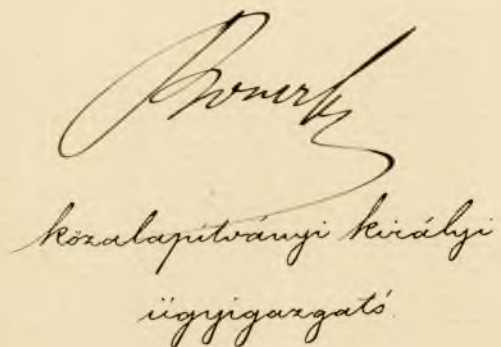 közalapítványi királyi
ügyigazgató.